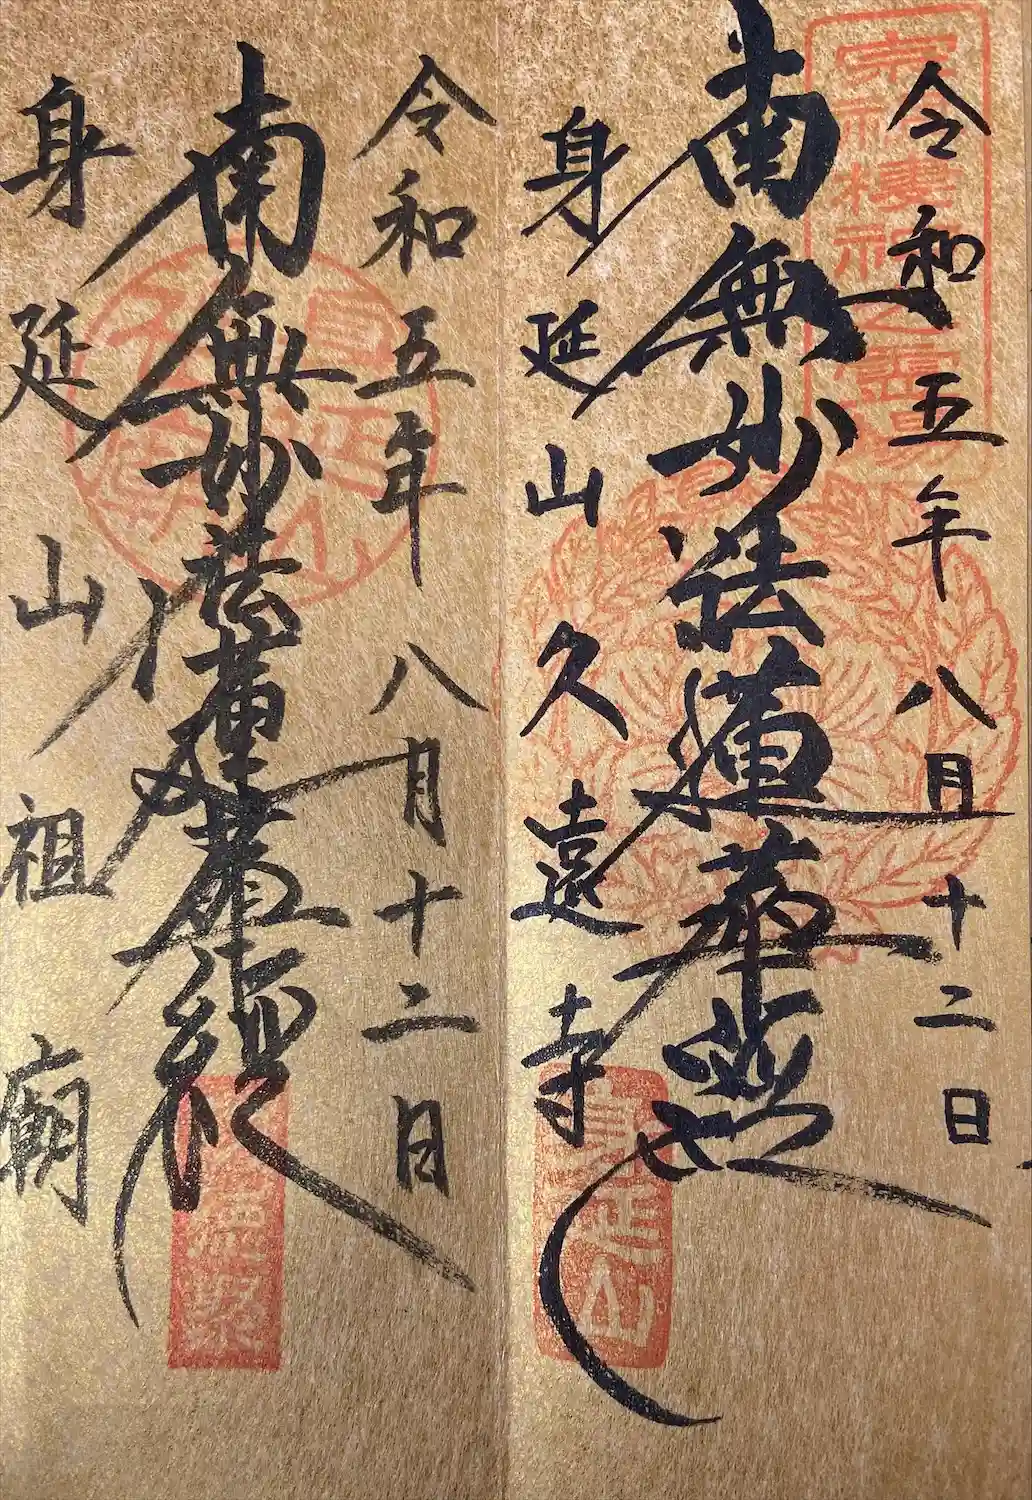 令和五年八月十二日
南無妙法蓮華経
身延山久遠寺
身延山
令和五年八月十二日
南無妙法蓮華経
身延山祖廟